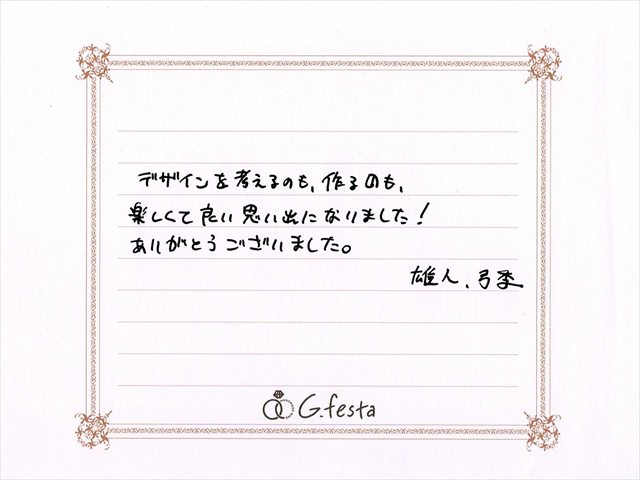 デザインを考えるのも、作るのも、
楽しくて良い思い出になりました!
ありがとうございました。
雄人、弓季
G.festa